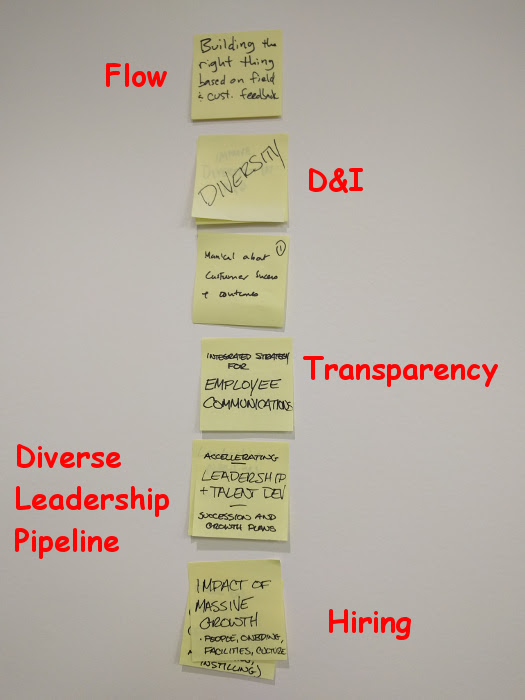 Flow
Building the
right thing
based on field
& cust. feedback
DIVERSITY
D&I
1
Manical about
Customer Success
+ outcomes
INTEGRATED STRATEGY
FOR
EMPLOYEE
COMMUNICATIONS
Transparency
Diverse
Leadership
Pipeline
ACCELLERATING
LEADERSHIP
+ TALENT DEV
SUCCESSION AND
GROWTH PLANS
IMPACT OF
MASSIVE
GROWTH
· PEOPLE, ONBDING,
FACILITIES, CULTURE
INSTILLING)
Hiring